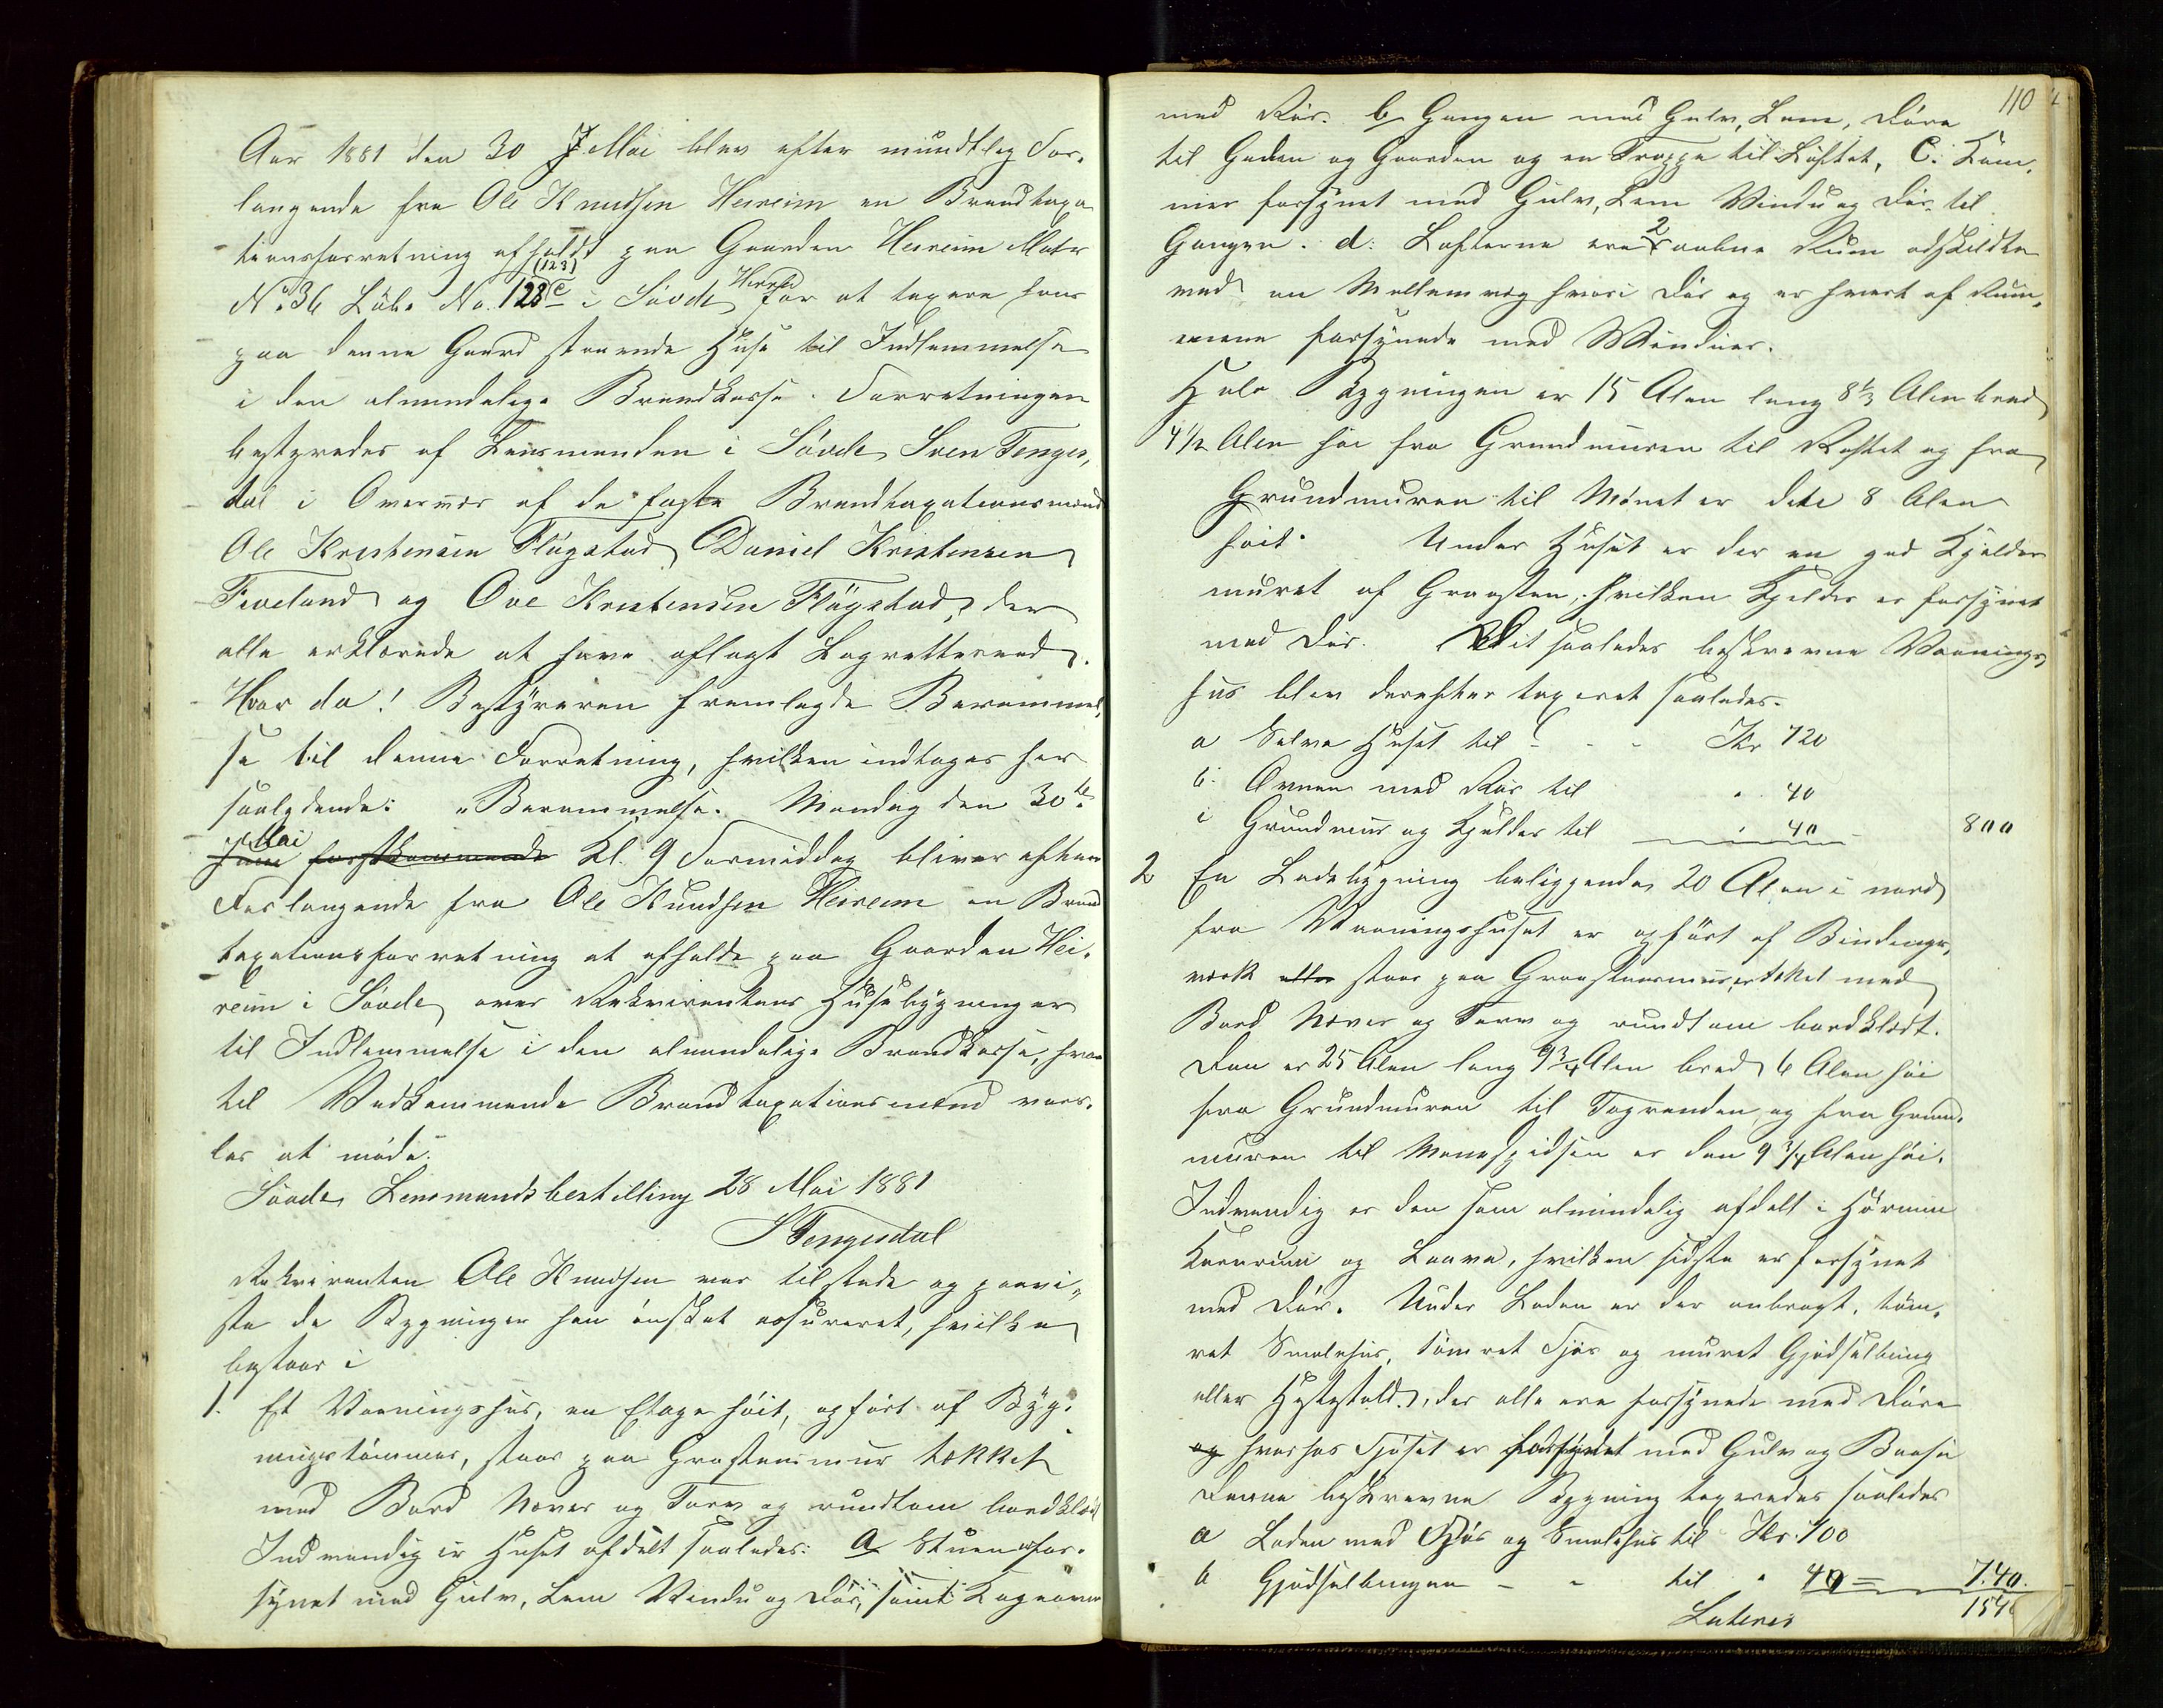 Aar 1881 den 30 Mai blev efter mundtlig For-
langende fra Ole Knudsen Heireim en Brandtaxa-
tionsforretning afholdt paa Gaarden Heireim Matr
No 36 Løbe No. 128c (123) i Søvde Herred for at taxere hans
paa denne Gaard staaende Huse til Indlemmelse
i den almindelige Brandkasse. Forretningen
bestyredes af Lensmanden i Søvde Sven Tenges-
dal i Overvær af de faste Brandtaxationsmænd
Ole Kristensen Fløgstad, Daniel Kristensen
Fiveland og Ove Kristensen Fløgstad, der
alle erklærede at have aflagt Lagretteseed.
Hvor da! Bestyreren fremlagde Berammel-
se til denne Forretning, hvilken indtages her
saalydende: "Berammelse. Mandag den 30te
Juni Mai førstkommende Kl. 9 Formiddag bliver efter
Forlangende fra Ole Knudsen Heireim en Brand
taxationsforretning at afholde paa Gaarden Hei-
reim i Søvde over Rekvirentens Husebygninger
til Indlemmelse i den almindelige Brandkasse, hvor
til Vedkommende Brandtaxationsmænd vars-
les at møde.
Søvde Lensmandsbestilling 28 Mai 1881
STengesdal
Rekvirenten Ole Knudsen var tilstede og paavi-
ste de Bygninger han ønsket assureret, hvilke
bestaar i
1. Et Vaaningshus, en Etage høit, opført af Byg-
ningstømmer, staar paa Graastensmur tækket
med Bord Næver og Torv og rundtom bordklædt
Indvendig er Huset afdelt saaledes: a Stuen for-
synet med Gulv, Lem Vindu og Dør, samt Kogeovn
110
med Rør. b Gangen med Gulv, Lem, Døre
til Gaden og Gaarden og en Trappe til Loftet, C. Kam-
mer forsynet med Gulv, Lem Vindu og Dør til
Gangen. d: Lofterne ere 2 aabne Rum adskildte
med en Mellemvæg hvori Dør og er hvert af Rum-
mene forsynede med Vinduer.
Hele Bygningen er 15 Alen lang 8 1/3 Alen bred
4 1/2 Alen høi fra Grundmuren til Raftet og fra
Grundmuren til Mønet er dete 8 Alen
høit. Under Huset er der en god Kjelder
muret af Graasten, hvilken Kjelder er forsynet
med Dør. Dit saaledes beskrevne Vaanings
hus blev derefter taxeret saaledes.
a Selve Huset til - - - Kr 720
b. Ovnen med Rør til " 40
c Grundmur og Kjelder til " 40 800
2 En Ladebygning beliggende 20 Alen i nord
fra Vaaningshuset er opført af Bindings-
værk eller staar paa Graastensmur, er tækket med
Bord Næver og Torv og rundtom bordklædt.
Den er 25 Alen lang 9 3/4 Alen bred 6 Alen høi
fra Grundmuren til Tagrenden og fra Grund-
muren til Mønespidsen er den 9 3/4 Alen høi.
Indvendig er den som almindelig afdelt i Hørum
Kornrum og Laave, hvilken sidste er forsynet
med Dør. Under Laden er der anbragt, tøm-
ret Smalehus, tømret Fjøs og muret Gjødselbinge
eller Hestestald, der alle ere forsynede med Døre
og hvorhos Fjøset er forsynet med Gulv og Baase
Denne beskrevne Bygning taxeredes saaledes
a Laden med Fjøs og Smalehus til Kr. 700
b Gjødselbingen - - til " 40 = 7.40.
Lateris 154